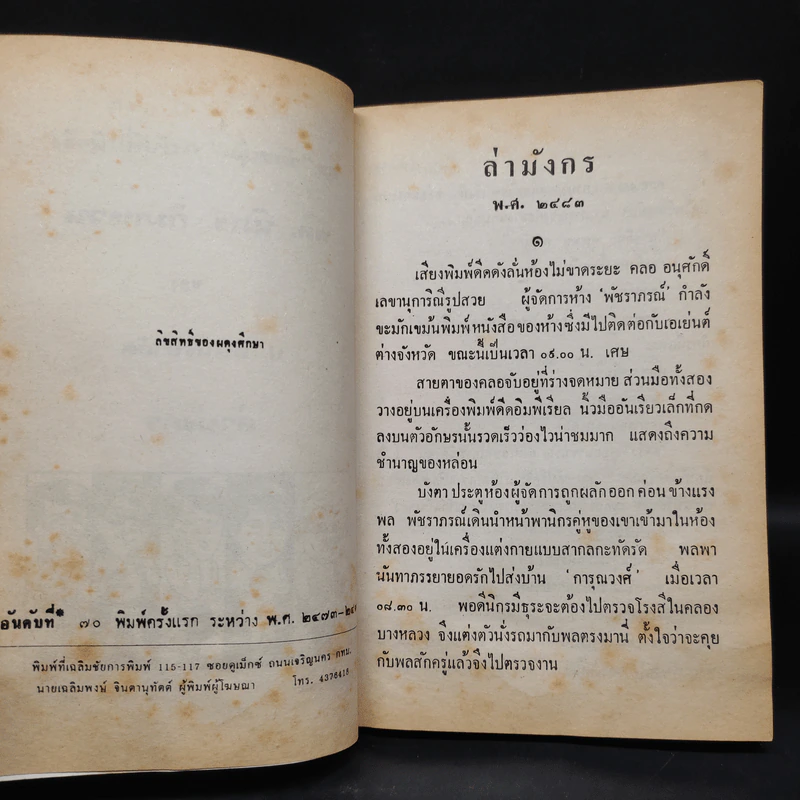 ลิขสิทธิ์ของผดุงศึกษา
อันดับที่ ๗๐ พิมพ์ครั้งแรก ระหว่าง พ.ศ. ๒๔๗๓-๒๔
พิมพ์ที่เฉลิมชัยการพิมพ์ 115-117 ซอยคูเม็กซ์ ถนนเจริญนคร กทม.
นายเฉลิมพงษ์ จินดานุทัตต์ ผู้พิมพ์ผู้โฆษณา โทร. 4376418
ล่ามังกร
พ.ศ. ๒๔๘๓
๑
เสียงพิมพ์ดีดดังลั่นห้องไม่ขาดระยะ คลอ อนุศักดิ์
เลขานุการิณีรูปสวย ผู้จัดการห้าง 'พัชราภรณ์' กำลัง
ขะมักเขม้นพิมพ์หนังสือของห้างซึ่งมีไปติดต่อกับเอเย่นต์
ต่างจังหวัด ขณะนี้เป็นเวลา ๐๙.๐๐ น. เศษ
สายตาของคลอจับอยู่ที่ร่างจดหมาย ส่วนมือทั้งสอง
วางอยู่บนเครื่องพิมพ์ดีดอิมพีเรียล นิ้วมืออันเรียวเล็กที่กด
ลงบนตัวอักษรนั้นรวดเร็วว่องไวน่าชมมาก แสดงถึงความ
ชำนาญของหล่อน
บังตา ประตูห้องผู้จัดการถูกผลักออก ค่อน ข้างแรง
พล พัชราภรณ์เดินนำหน้าพานิกรคู่หูของเขาเข้ามาในห้อง
ทั้งสองอยู่ในเครื่องแต่งกายแบบสากลกะทัดรัด พลพา
นันทาภรรยายอดรักไปส่งบ้าน 'การุณวงศ์' เมื่อเวลา
๐๘.๓๐ น. พอดีนิกรมีธุระจะต้องไปตรวจโรงสีในคลอง
บางหลวง จึงแต่งตัวนั่งรถมากับพลตรงมานี่ ตั้งใจว่าจะคุย
กับพลสักครู่แล้วจึงไปตรวจงาน